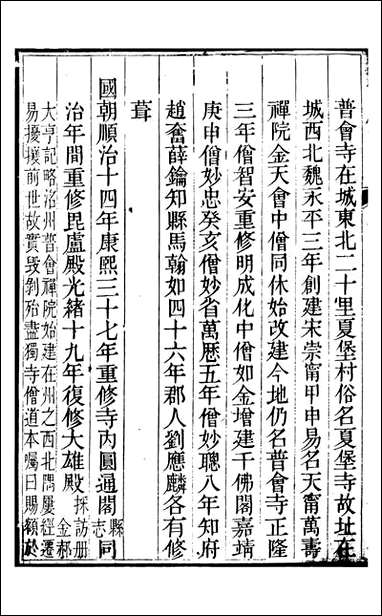 普會寺在城東北二十里夏堡村俗名夏堡寺故址在
城西北魏永平三年創建宋崇甯甲申易名天甯萬壽
禪院金天會中僧同休始改建今地仍名普會寺正隆
三年僧智安重修明成化中僧如金增建千佛閣嘉靖
庚申僧妙忠癸亥僧妙省萬厯五年僧妙聰八年知府
趙奮薛鑰知縣馬翰如四十六年郡人劉應麟各有修
葺
國朝順治十四年康熙三十七年重修寺內圓通閣縣志同
治年間重修毘盧殿光緒十九年復修大雄殿採訪册金郝
大亨記略洺州普會禪院始建在州之西北閒屢經遷
易擾攘前世故實毀剝殆盡獨寺僧道本囑曰賜額於